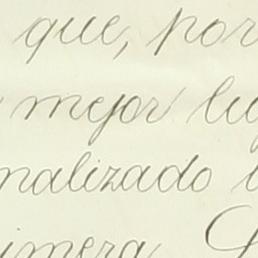 que, por
mejor lu
nalizado
imera